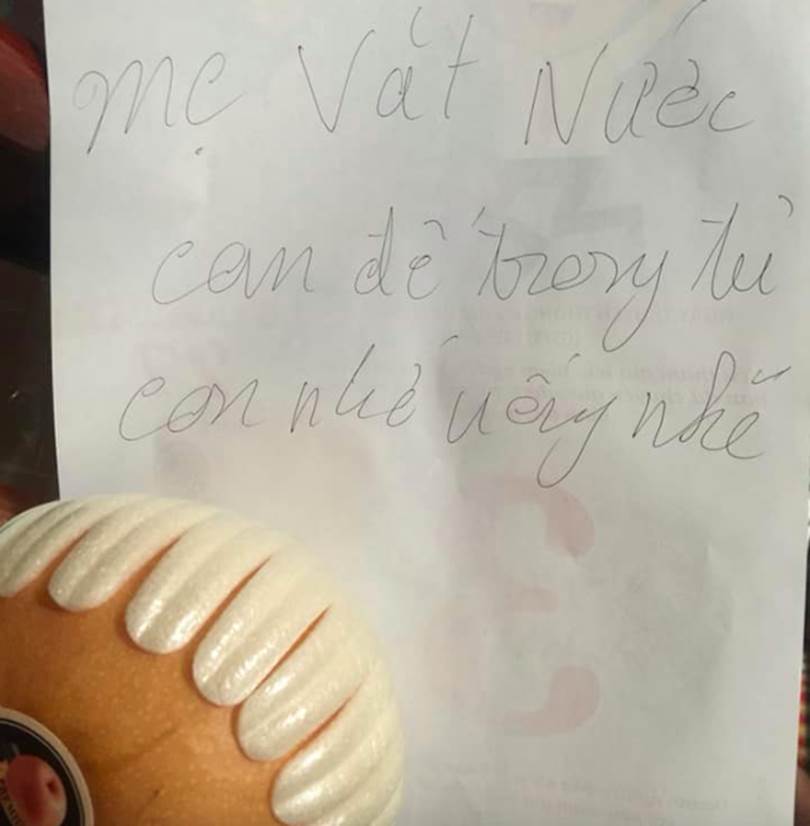 mẹ Vắt Nước
cam để trong tủ
con nhớ uống nhé